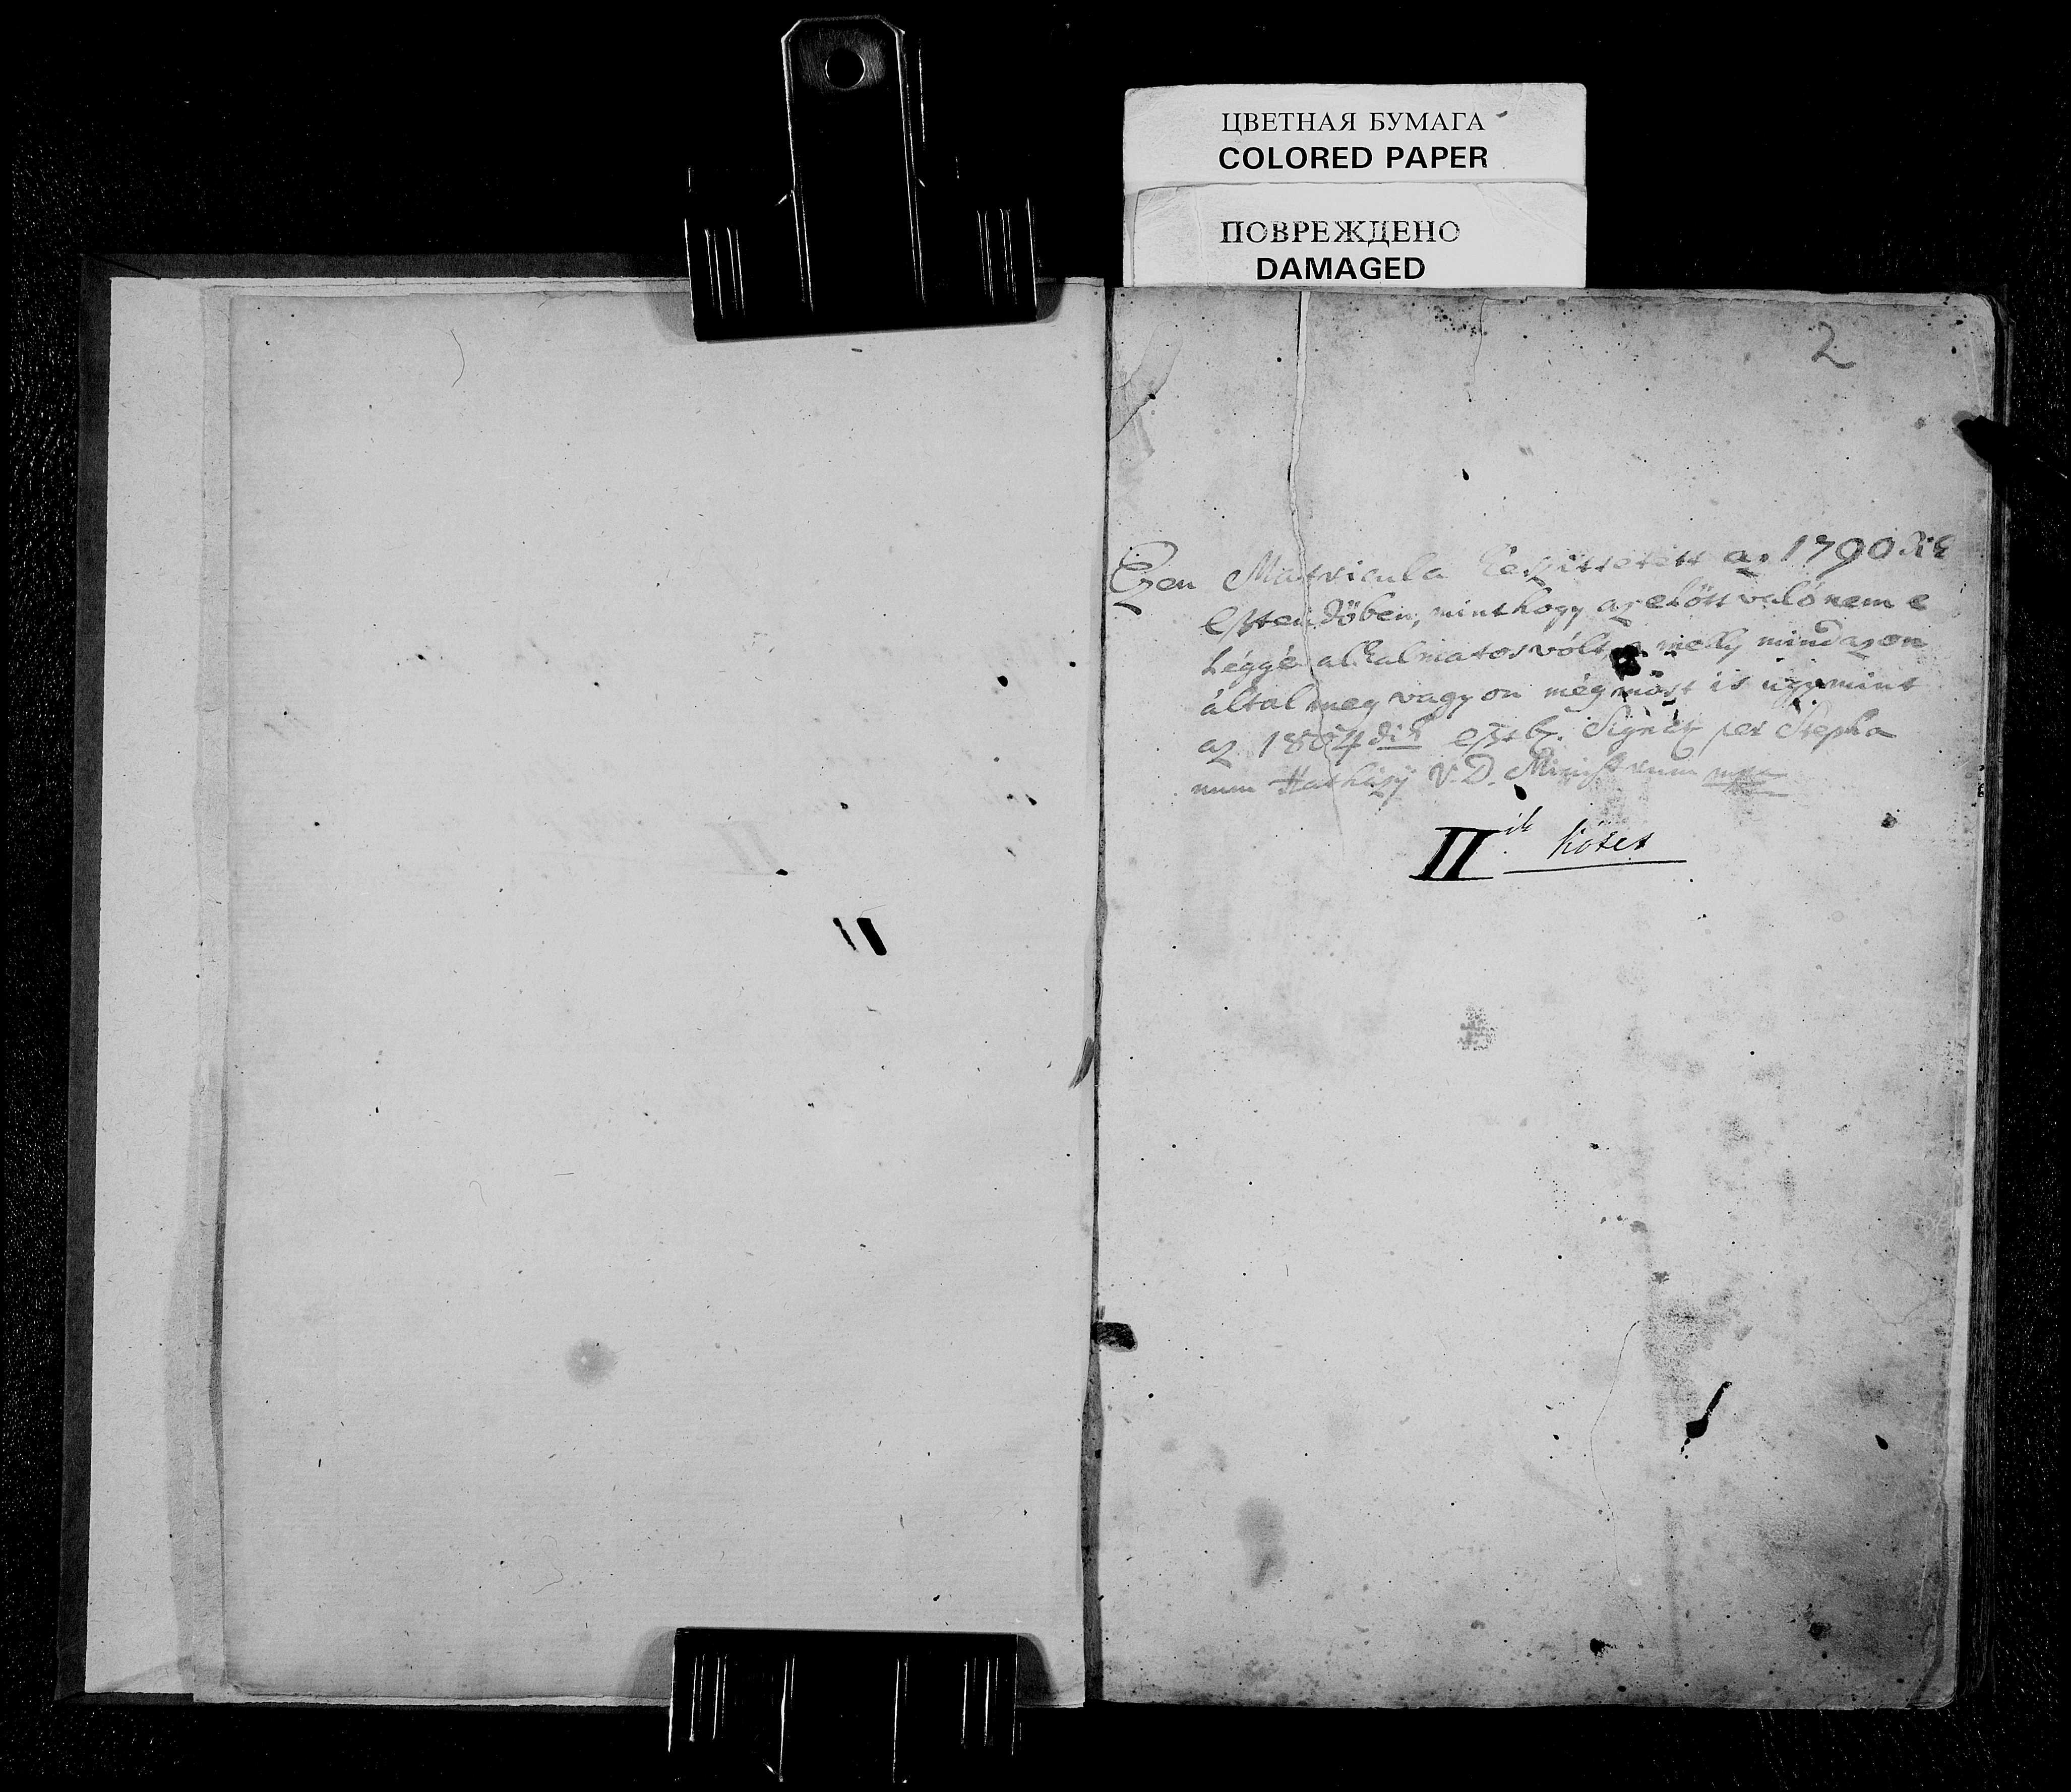 ЦВЕТНАЯ БУМАГА
COLORED PAPER
ПОВРЕЖДЕНО
DAMAGED
2
Ezen Matricula Készittetett az 1790dik
Esztendőben, minthogy azelőtt való nem e
léggé alkalmatos vólt a melly mindazon
által meg vagyon még most is úgymint
az 1804dik eszt. Signat per Stepha
num Hatházÿ V. D. Ministrum mpa
IIik kötet